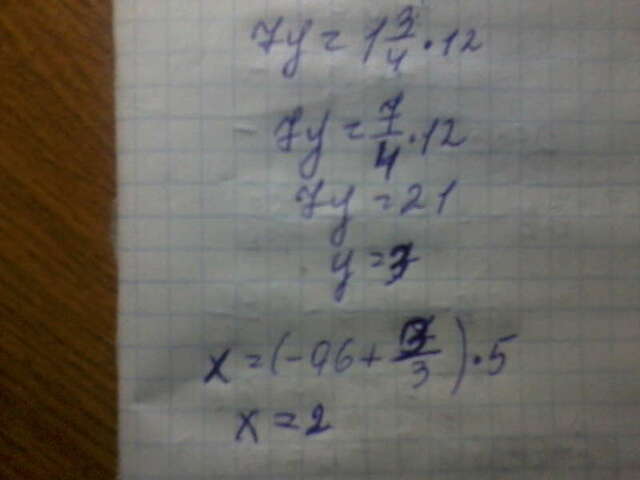 7y = 1 3/4 · 12
7y = 7/4 · 12
7y = 21
y = 3
x = (-0,6 + 3/3) · 5
x = 2